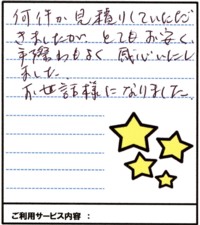 何件か見積りしていただ
きましたが とてもお安く、
手際もよく 感心いたし
ました。
お世話様になりました。
ご利用サービス内容 :